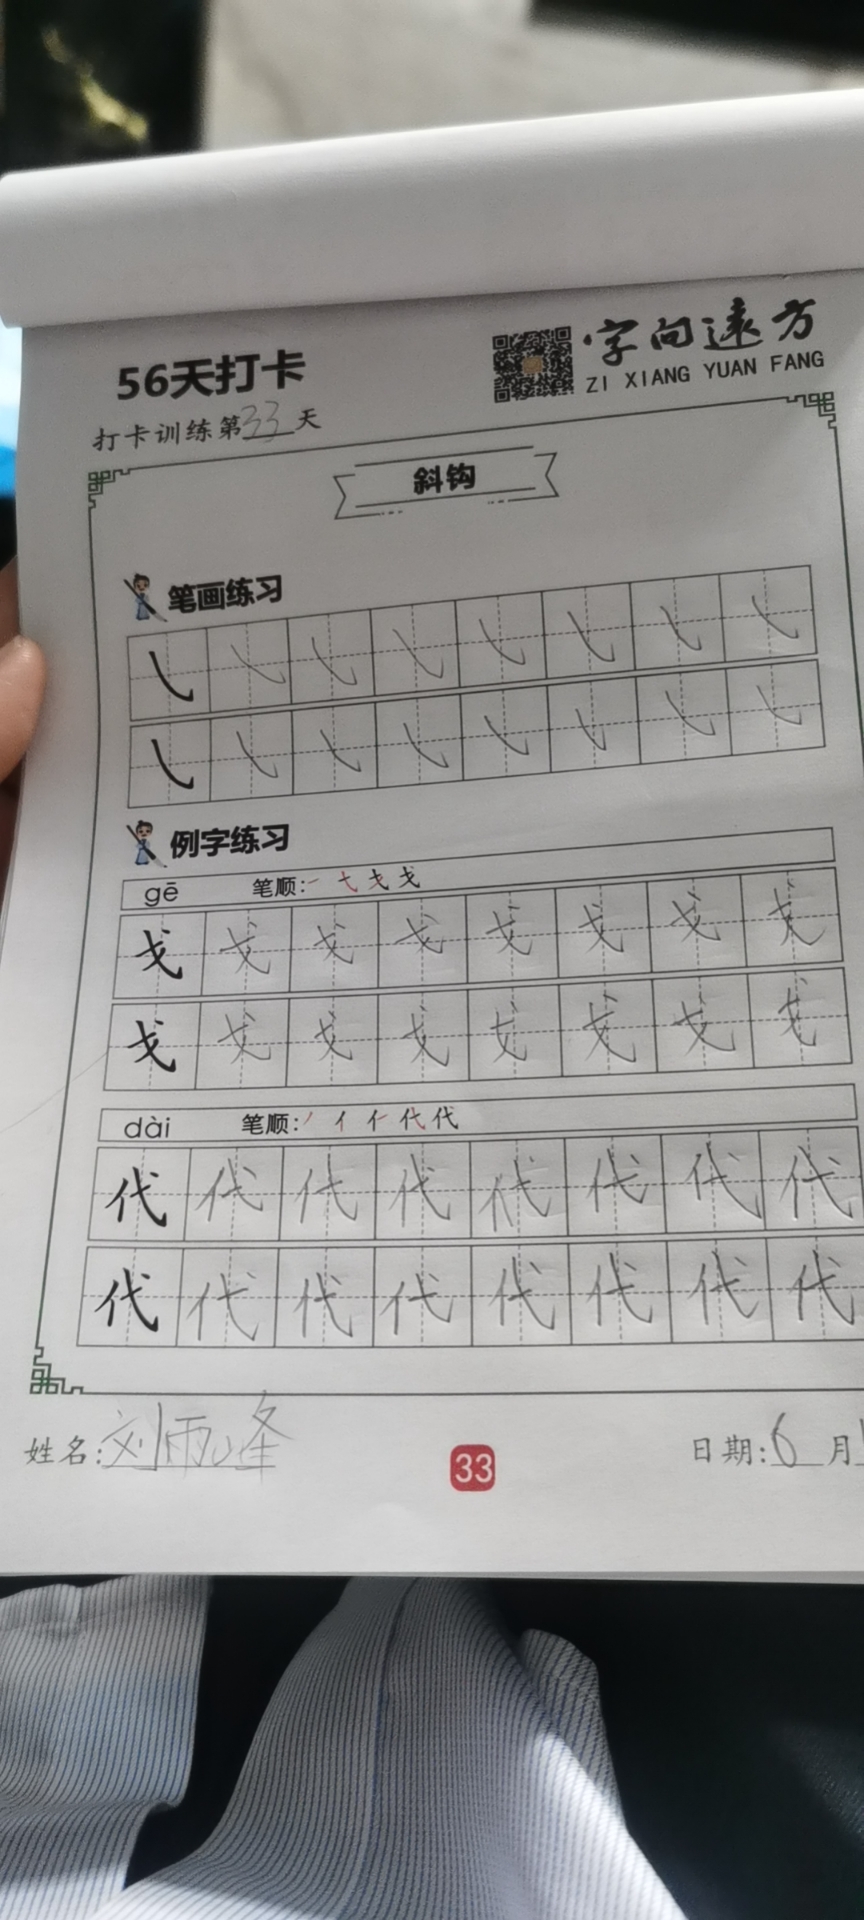 56天打卡
字向远方
ZI XIANG YUAN FANG
打卡训练第33天
斜钩
笔画练习
㇂ ㇂ ㇂ ㇂ ㇂ ㇂ ㇂ ㇂
㇂ ㇂ ㇂ ㇂ ㇂ ㇂ ㇂ ㇂
例字练习
gē 笔顺:
戈 戈 戈 戈 戈 戈 戈 戈
戈 戈 戈 戈 戈 戈 戈 戈
dài 笔顺:
代 代 代 代 代 代 代 代
代 代 代 代 代 代 代 代
姓名:刘雨峰
33
日期:6月